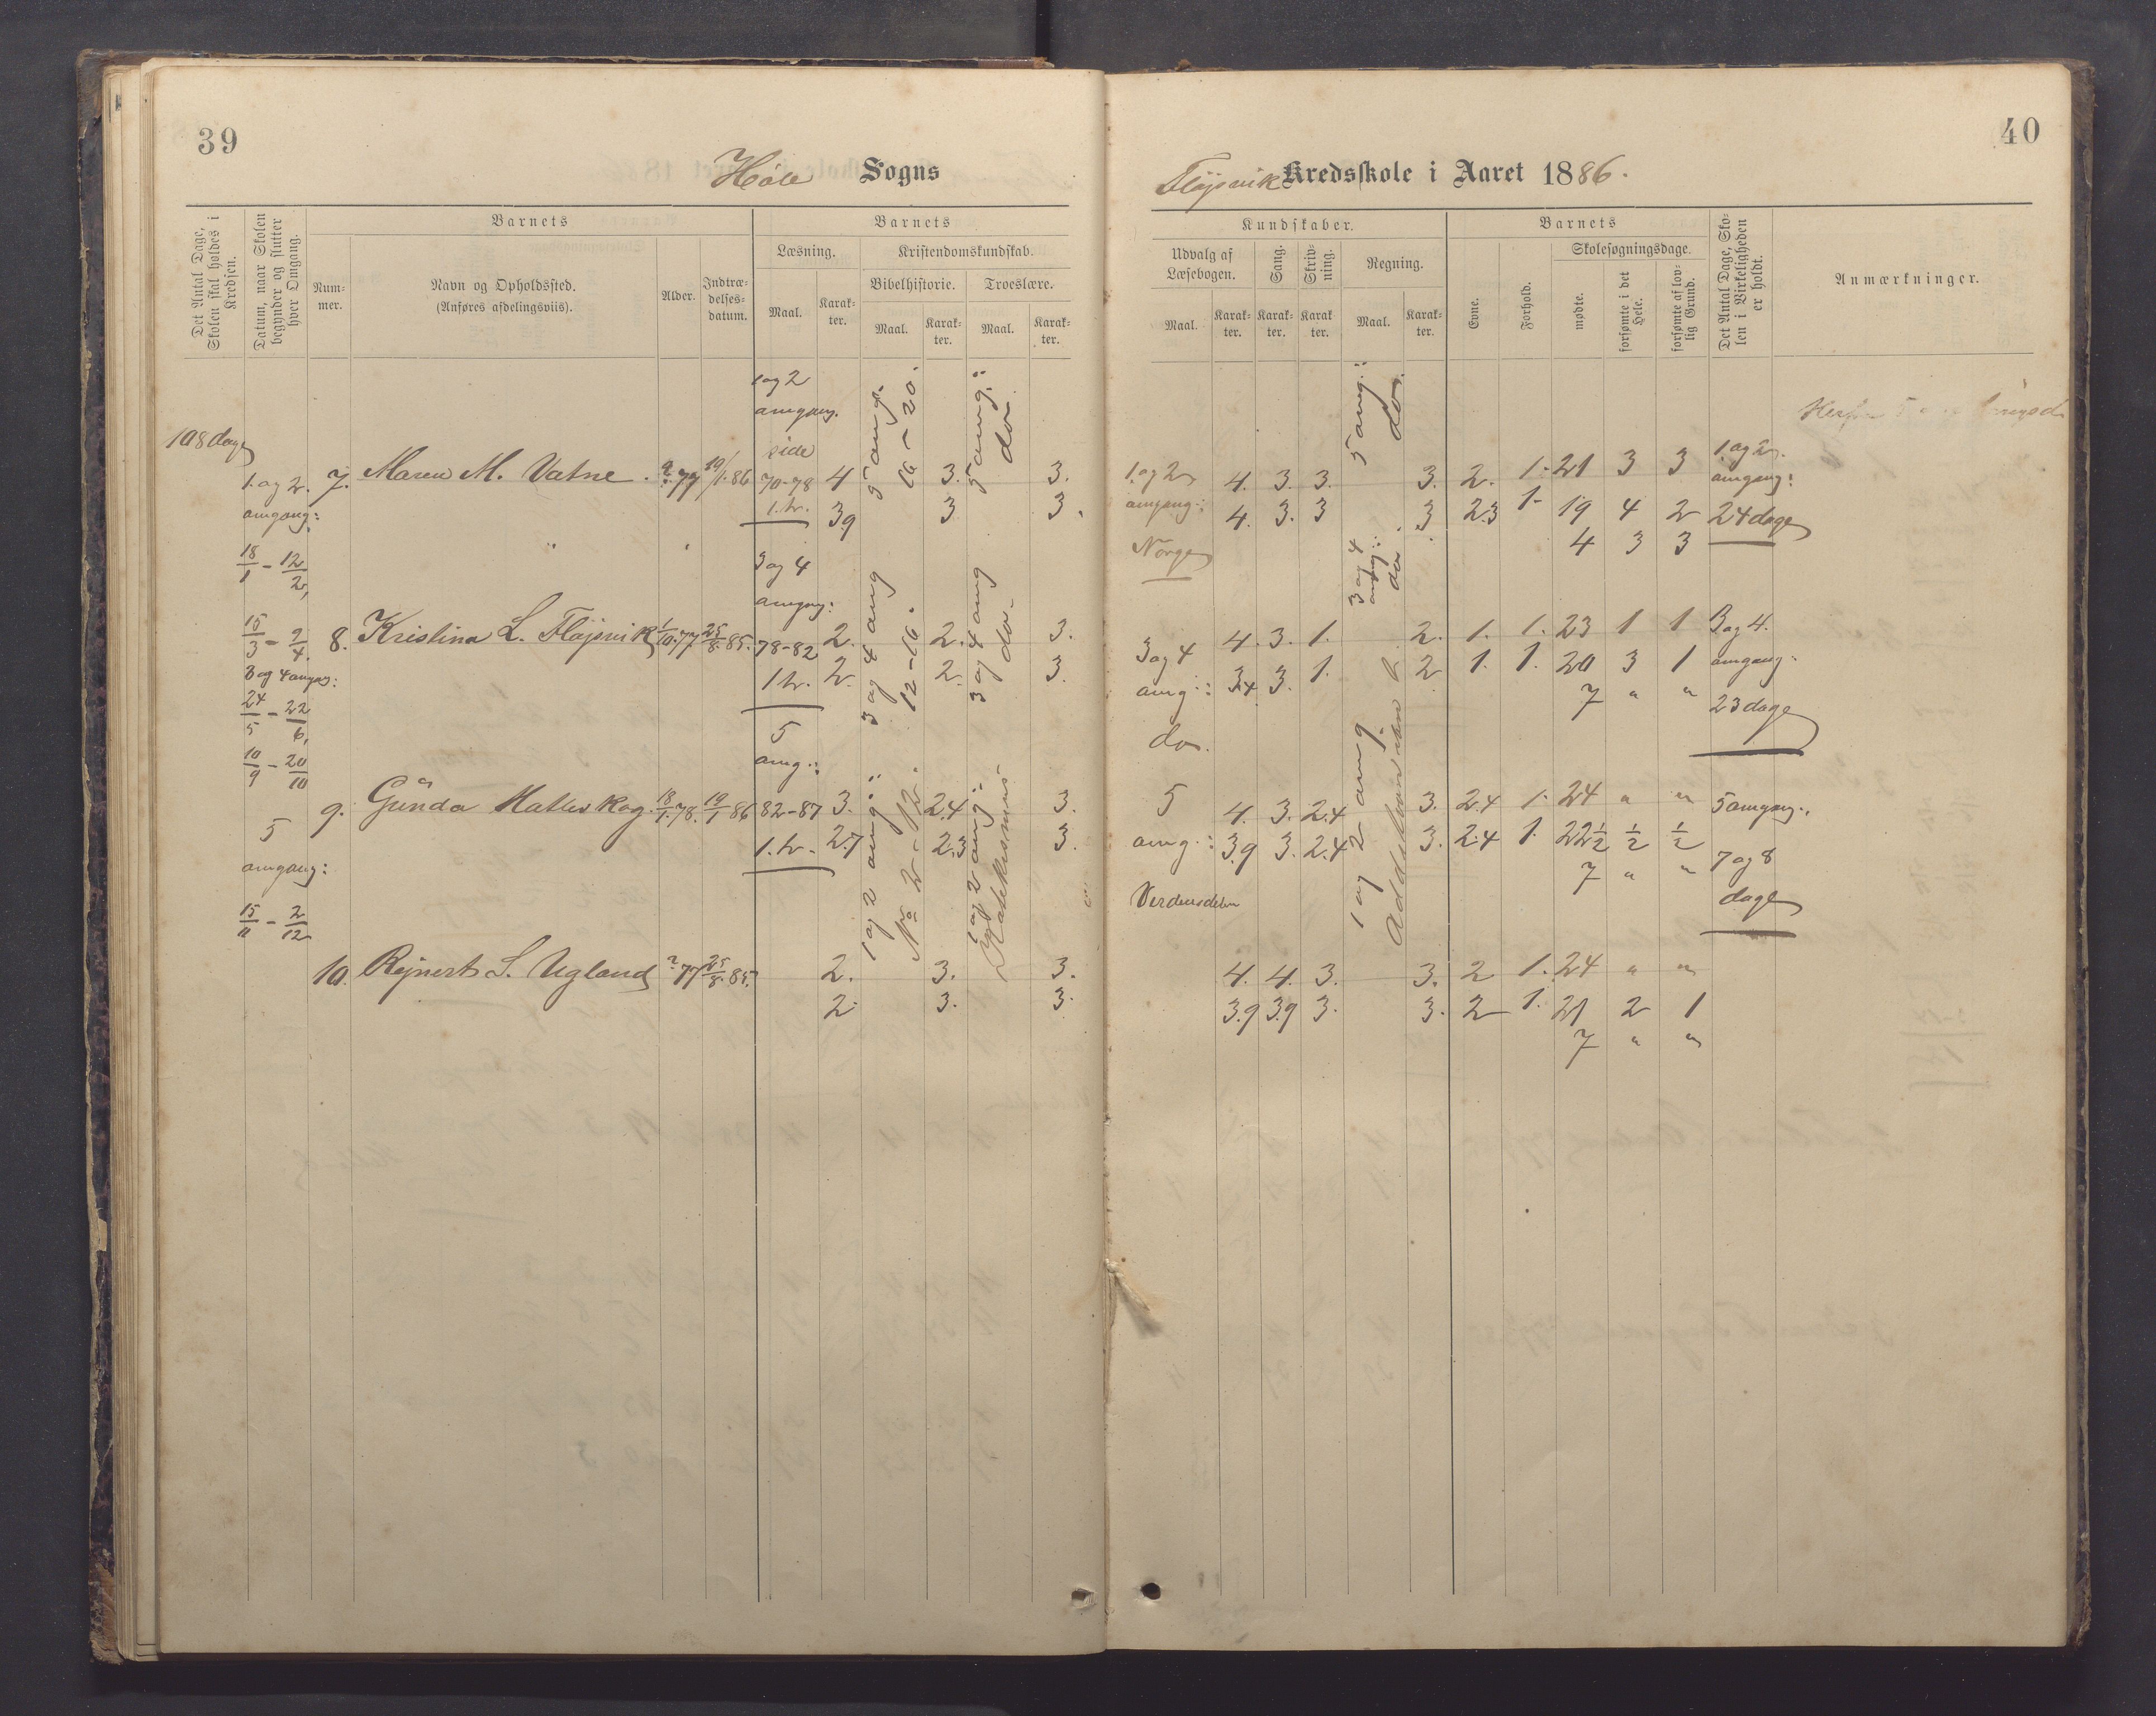 39
Høle Sogns
Det Antal Dage, Skolen skal holdes i Kredsen.
Datum, naar Skolen begynder og slutter hver Omgang.
Barnets
Num-
mer.
Navn og Opholdssted.
(Anføres afdelingsviis).
Alder.
Indtræ-
delses-
datum.
Barnets
Læsning.
Maal.
Karak-
ter.
Kristendomskundskab.
Bibelhistorie.
Maal.
Karak-
ter.
Troeslære.
Maal.
Karak-
ter.
108 dage
1. og 2.
omgang:
18/1 - 12/2,
15/3 - 9/4.
3 og 4 omgang:
24/5 - 22/6,
10/9 - 20/10
5
omgang:
15/11 - 2/12
1 og 2
omgang.
side
70-78
1. h.
3 og 4
omgang:
78-82
1 h.
5
omg.:
82-87
1. h.
5 omg.
16 - 20.
3 og 4 omg
12-16.
1 og 2 omg:
No 2 - 12.
5 omg.:
do
3 og 4 omg
do
1 og 2 omg:
Katekismus
7. Maren M. Vatne. 77 19/1.86 4 3. 3.
3.9 3 3.
8. Kristina L. Fløjsvik 1/10.77 25/8.85. 2. 2. 3.
2. 2. 3.
9. Gunda Hatleskog. 18/1.78. 19/1 86 3. 2.4 3.
2.7 2.3 3.
10. Rejnert S. Ugland ? 77 25/8.85. 2. 3. 3.
2. 3. 3.
40
Fløjsvik Kredsskole i Aaret 1886.
Kundskaber.
Udvalg af
Læsebogen.
Maal.
Karak-
ter.
Sang.
Karak-
ter.
Skriv-
ning.
Karak-
ter.
Regning.
Maal.
Karak-
ter.
Barnets
Evne.
Forhold.
Skolesøgningsdage.
mødte.
forsømte i det Hele.
forsømte af lov-
lig Grund.
Det Antal Dage, Sko-
len i Virkeligheden er holdt.
Anmærkninger.
1. og 2
omgang:
Norge
3 og 4
omg.:
do.
5
omg.:
Verdensdelen
5 omg.:
do.
3 og 4
omg.:
do.
1 og 2 omg.
4. 3. 3. 3. 2. 1. 21 3 3
4. 3. 3 3 2.3 1. 19 4 2
4 3 3
4. 3. 1. 2. 1. 1. 23 1 1
3.4 3. 1. 2 1. 1. 20 3 1
7 " "
4. 3. 2.4 3. 2.4 1. 24 " "
3.9 3. 2.4 3. 2.4 1. 22½ ½ ½
7 " "
4. 4. 3. 3. 2 1. 24 " "
3.9 3.9 3. 3. 2 1. 21 2 1
7 " "
1. og 2.
omgang:
24 dage
3 og 4.
omgang:
23 dage
5 omgang.
7 og 8
dage